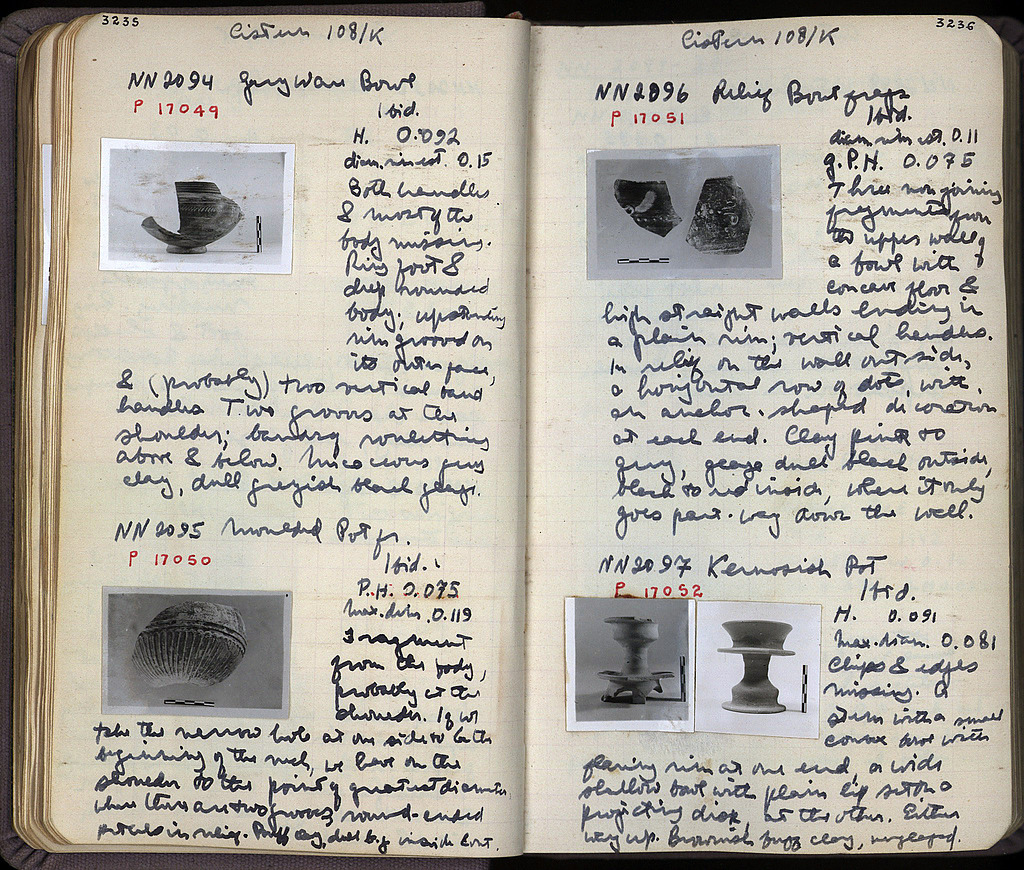 3235
Cistern 108/K
NN 2094 Grey Ware Bowl
P 17049
Ibid.
H. 0.092
diam. rim est. 0.15
Both handles
& most of the
body missing.
Ring foot &
deep rounded
body; upstanding
rim grooved on
its outer face,
& (probably) two vertical band
handles. Two grooves at the
shoulder; banding rouletting
above & below. Micaceous grey
clay, dull greyish black glaze.
NN 2095 Moulded Pot fr.
P 17050
Ibid.
P.H. 0.075
Max. diam. 0.119
Fragment
from the body,
probably at the
shoulder. If we
take the narrow hole at one side to be the
beginning of the neck, we have on the
shoulder to the point of greatest diameter,
where there are two grooves, round-ended
petals in relief. Buff clay, dull bg. inside & out.
3236
Cistern 108/K
NN 2096 Relief Bowl frags
P 17051
Ibid.
diam. rim est. 0.11
g.P.H. 0.075
Three non joining
fragments from
the upper wall of
a bowl with
concave floor &
high straight walls ending in
a plain rim; vertical handles.
In relief on the wall outside,
a horizontal row of dots, with
an anchor-shaped decoration
at each end. Clay pink to
grey, glaze dull black outside,
black to red inside, where it only
goes part-way down the wall.
NN 2097 Kernosish Pot
P 17052
Ibid.
H. 0.091
Max. diam. 0.081
Chips & edges
missing. A
stem with a small
convex bowl with
flaring rim at one end, a wide
shallow bowl with plain lip set on a
projecting disk, at the other. Either
way up. Brownish buff clay, unglazed.